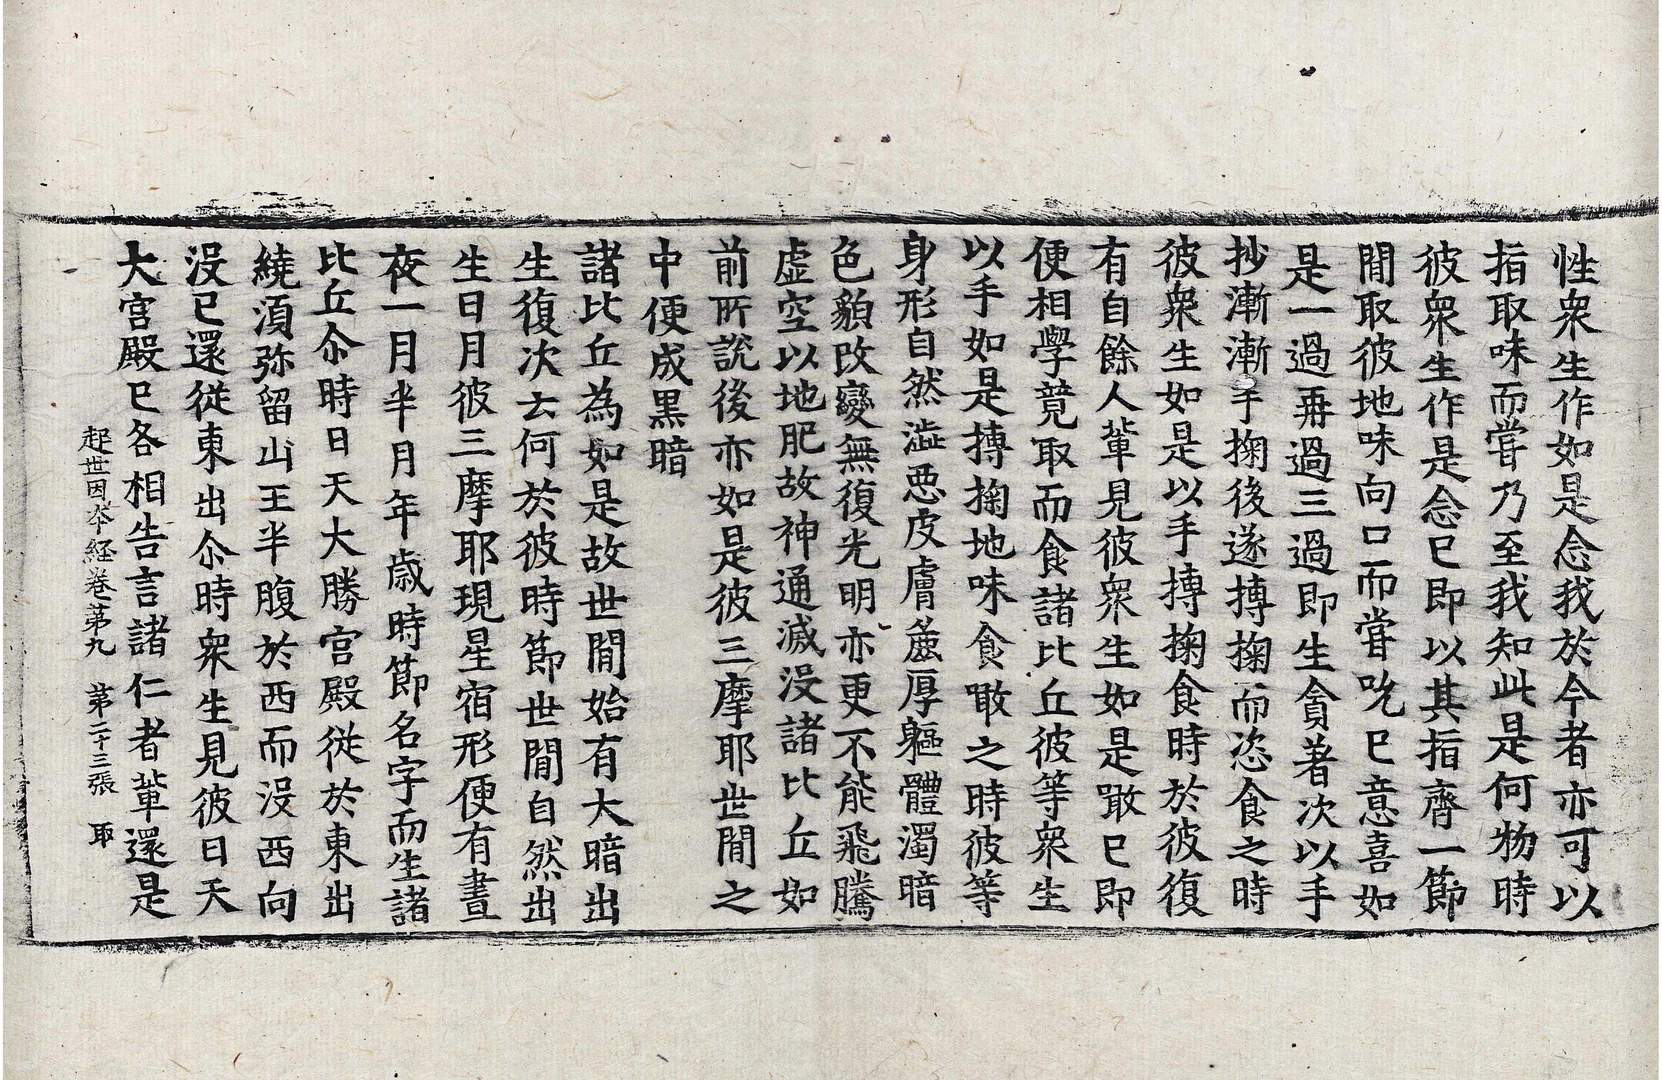 性衆生作如是念我於今者亦可以
指取味而甞乃至我知此是何物時
彼衆生作是念已即以其指齊一節
間取彼地味向口而甞吮已意喜如
是一過再過三過即生貪著次以手
抄漸漸手掬後遂摶掬而恣食之時
彼衆生如是以手摶掬食時於彼復
有自餘人輩見彼衆生如是噉已即
便相學竟取而食諸比丘彼等衆生
以手如是摶掬地味食噉之時彼等
身形自然澁惡皮膚麁厚軀體濁暗
色貌改變無復光明亦更不能飛騰
虛空以地肥故神通滅沒諸比丘如
前所說後亦如是彼三摩耶世間之
中便成黑暗
諸比丘為如是故世間始有大暗出
生復次云何於彼時節世間自然出
生日月彼三摩耶現星宿形便有晝
夜一月半月年歲時節名字而生諸
比丘尒時日天大勝宮殿從於東出
繞須弥留山王半腹於西而沒西向
沒已還從東出尒時衆生見彼日天
大宮殿已各相告言諸仁者輩還是
起世因夲経卷第九 第二十三張 取